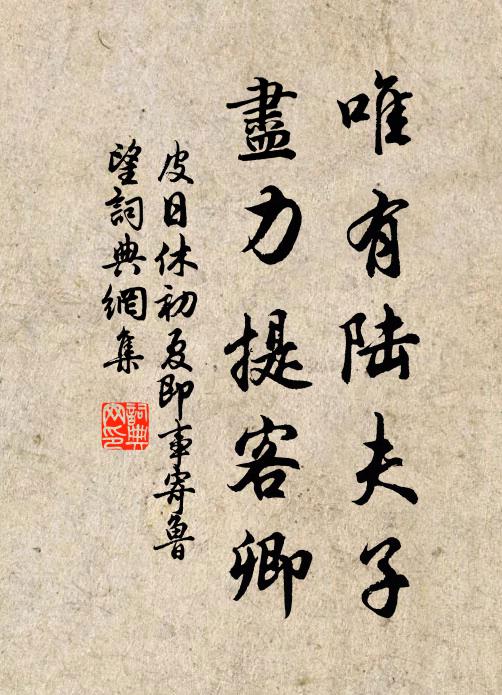 唯有陆夫子
盡力提客卿
皮日休初夏即事寄魯
望詞典網集
詞典
网印